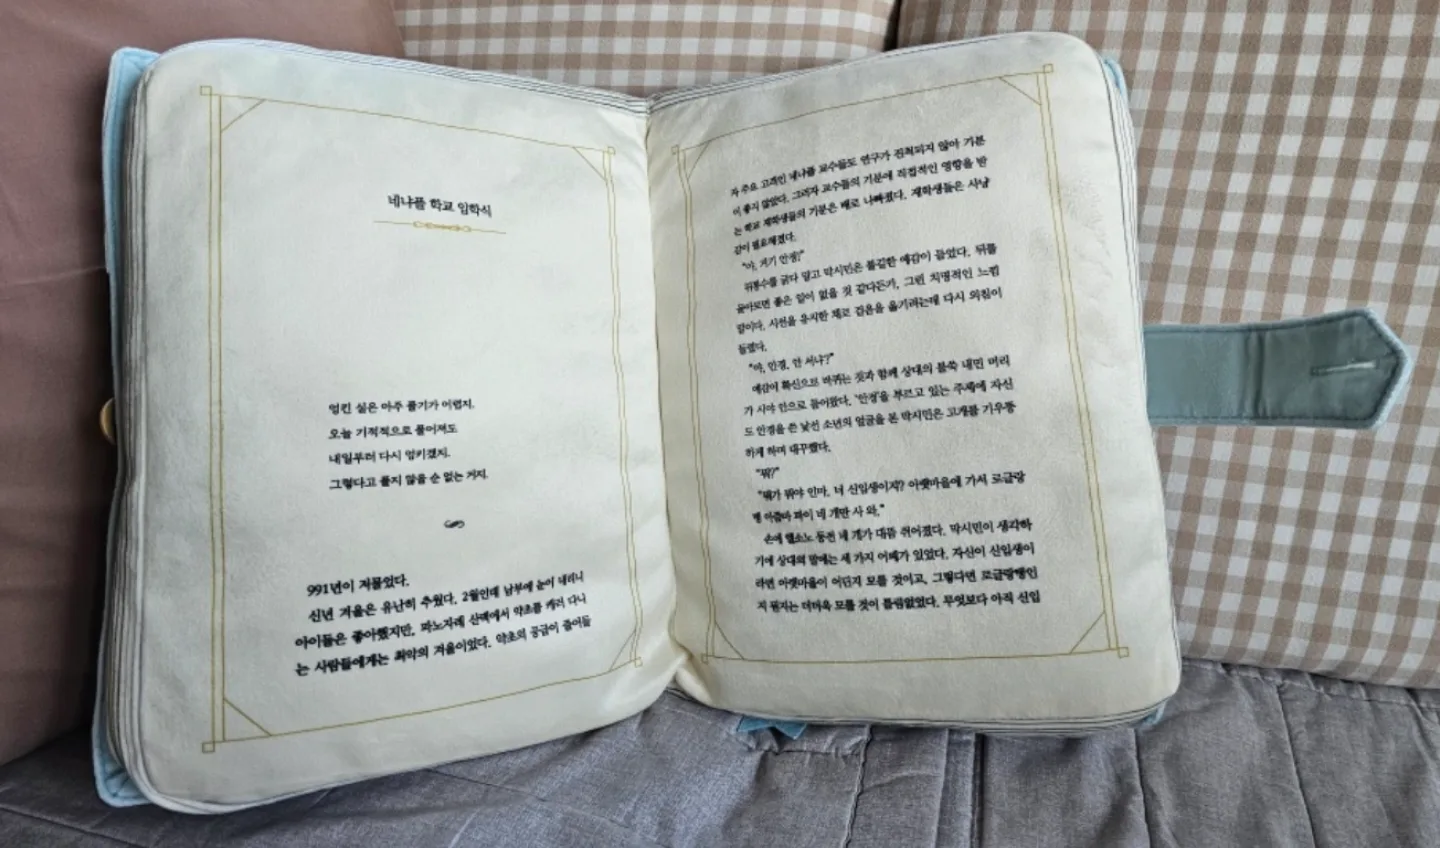 네냐플 학교 입학식
엉킨 실은 아주 풀기가 어렵지.
오늘 기적적으로 풀어져도
내일부터 다시 엉키겠지.
그렇다고 풀지 않을 순 없는 거지.
991년이 저물었다.
신년 겨울은 유난히 추웠다. 2월인데 남부에 눈이 내리니
아이들은 좋아했지만, 파노자레 산맥에서 약초를 캐러 다니
는 사람들에게는 최악의 겨울이었다. 약초의 공급이 줄어들
자 주요 고객인 네냐플 교수들도 연구가 진척되지 않아 기분
이 좋지 않았다. 그러자 교수들의 기분에 직접적인 영향을 받
는 학교 재학생들의 기분은 배로 나빠졌다. 재학생들은 사냥
감이 필요해졌다.
"야, 저기 안경!"
뒤통수를 긁다 말고 막시민은 불길한 예감이 들었다. 뒤를
돌아보면 좋은 일이 없을 것 같다든가, 그런 치명적인 느낌
같이다. 시선을 유지한 채로 걸음을 옮기려는데 다시 외침이
들렸다.
"야, 안경, 안 서냐?"
예감이 확신으로 바뀌는 것과 함께 상대의 불쑥 내민 머리
가 시야 안으로 들어왔다. '안경'을 부르고 있는 주제에 자신
도 안경을 쓴 낯선 소년의 얼굴을 본 막시민은 고개를 기우뚱
하게 하며 대꾸했다.
"뭐?"
"뭐가 뭐야 인마. 너 신입생이지? 아랫마을에 가서 로글랑
벵 아줌마 파이 네 개만 사 와."
손에 엘소노 동전 네 개가 대뜸 쥐어졌다. 막시민이 생각하
기에 상대의 말에는 세 가지 어폐가 있었다. 자신이 신입생이
라면 아랫마을이 어딘지 모를 것이고, 그렇다면 로글랑벵인
지 뭔지는 더더욱 모를 것이 틀림없었다. 무엇보다 아직 신입